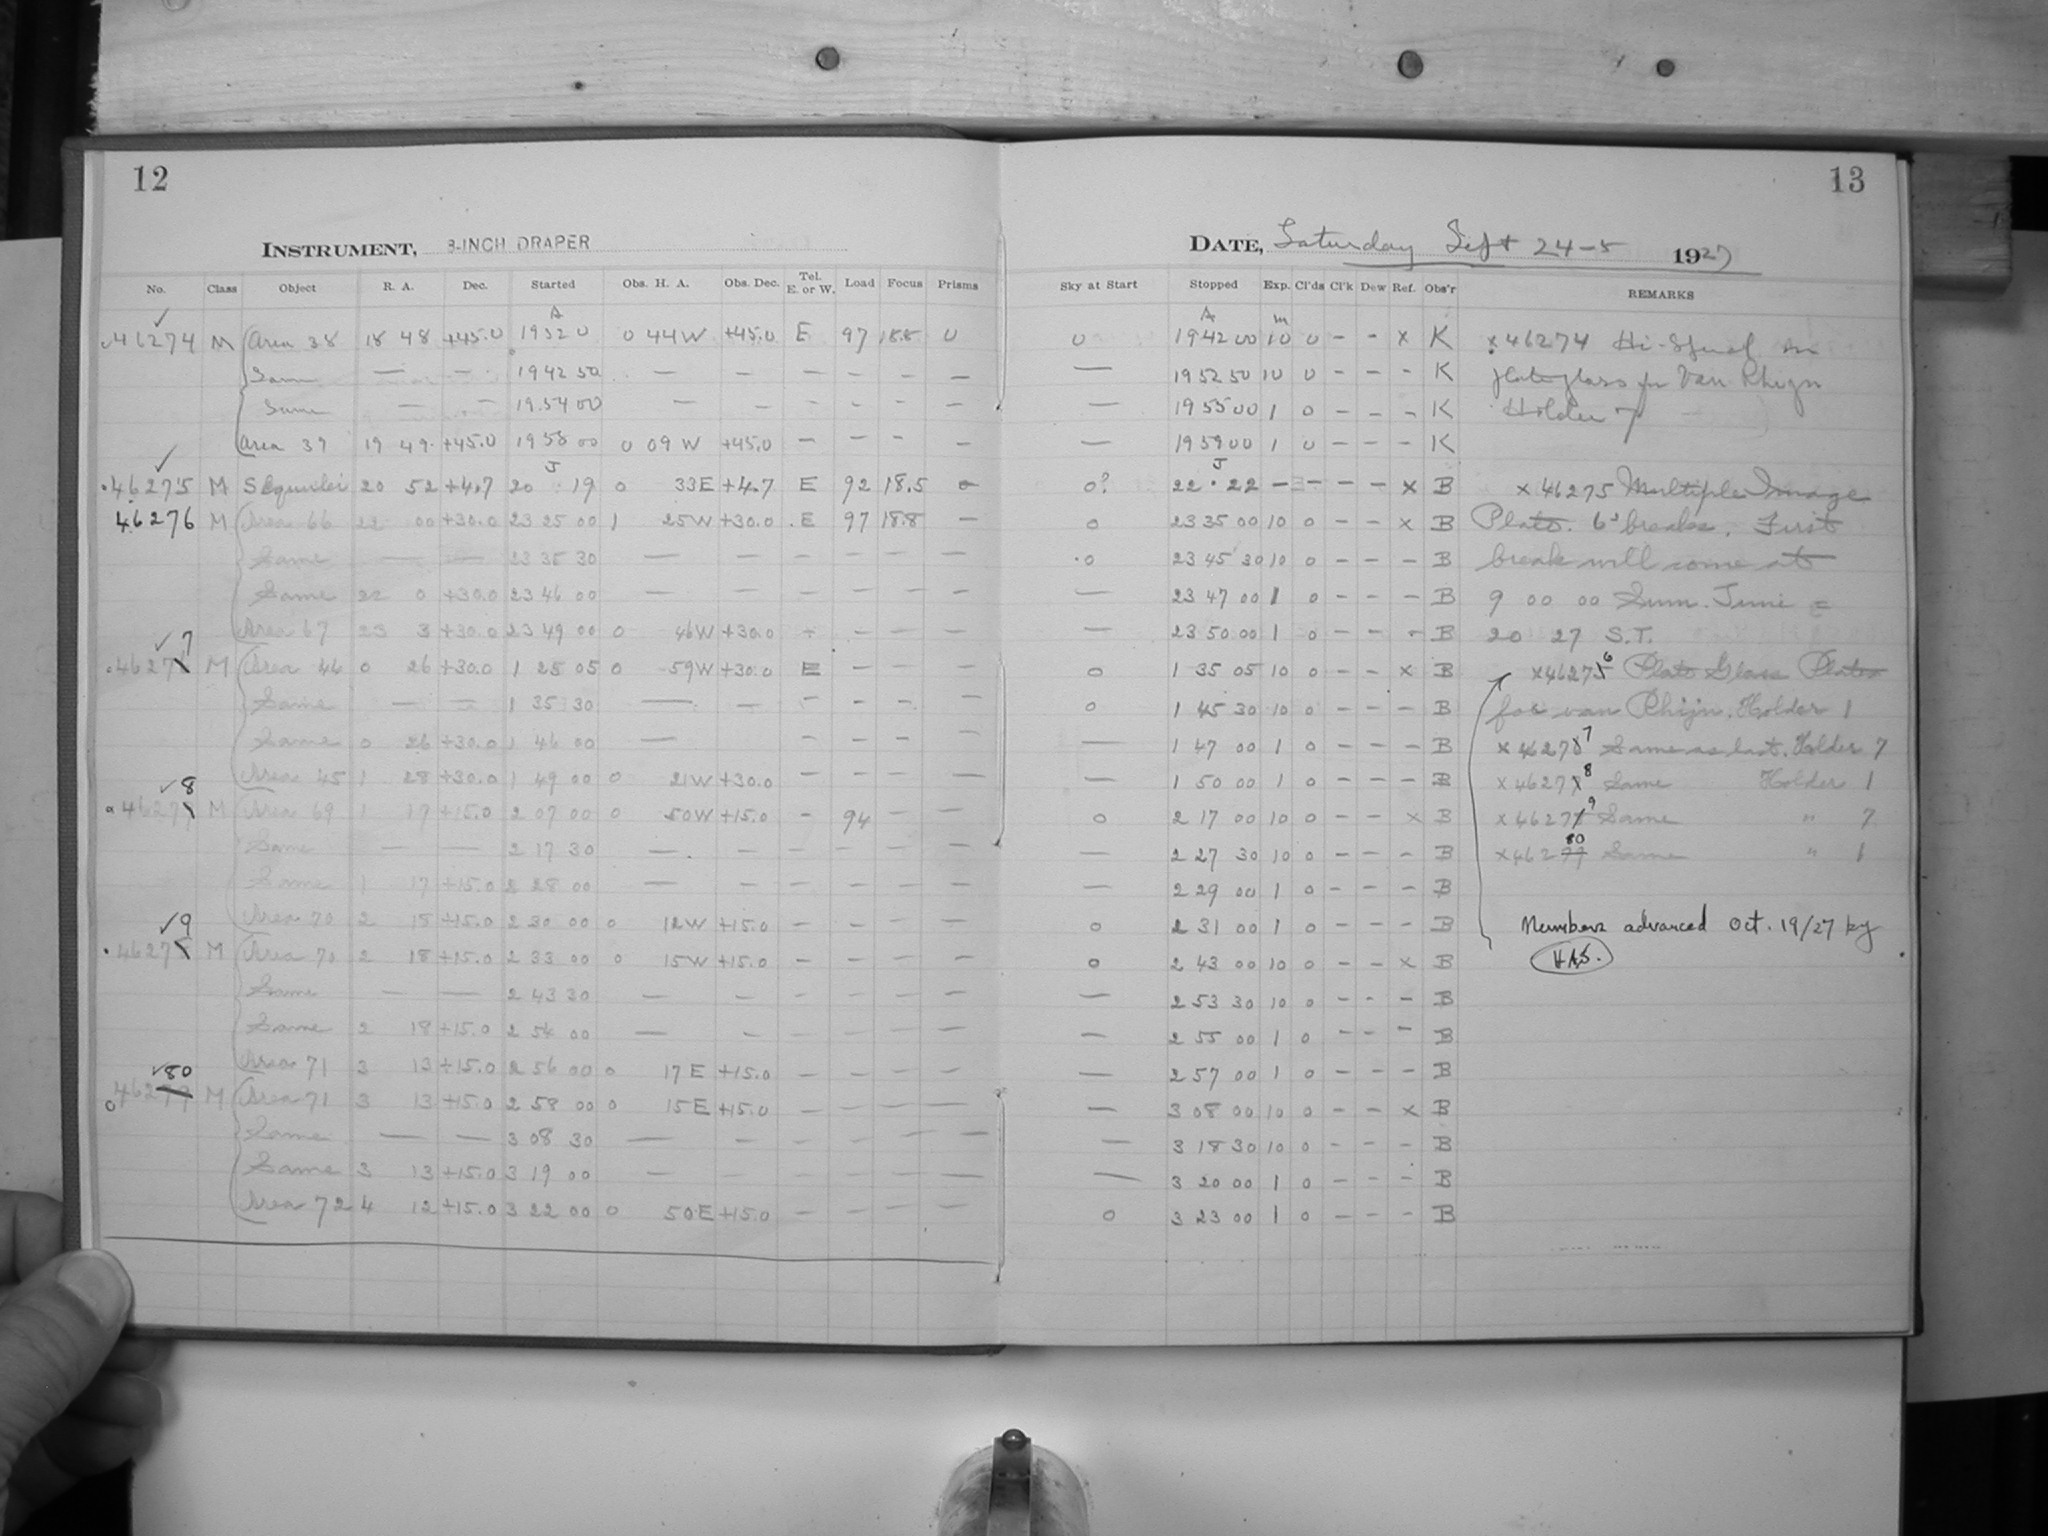 12
13
INSTRUMENT, 8-INCH DRAPER
DATE, Saturday Sept 24-5 1927
No. Class Object R. A. Dec. Started Obs. H. A. Obs. Dec. Tel. E. or W. Load Focus Prisms Sky at Start Stopped Exp. Cl'ds Cl'k Dew Ref. Obs'r REMARKS
A A m
46274 M Area 38 18 48 +45.0 19 32 0 0 44 W +45.0 E 97 18.8 0 0 19 42 00 10 0 - - x K x 46274 Hi-Speed on
Same — - 19 42 50 — - - - - - — 19 52 50 10 0 - - - K plate glass for Van Rhijn
Same — - 19 54 00 — - - - - - — 19 55 00 1 0 - - - K Holder 7
Area 39 19 49 +45.0 19 58 00 0 09 W +45.0 - - - - — 19 59 00 1 0 - - - K
J J
46275 M S Equulei 20 52 +4.7 20 19 0 33 E +4.7 E 92 18.5 - 0? 22 22 - - - - x B x 46275 Multiple Image
46276 M Area 66 22 00 +30.0 23 25 00 1 25 W +30.0 E 97 18.8 - 0 23 35 00 10 0 - - x B Plate. 6 breaks. First
Same — — 23 35 30 — - - - - - 0 23 45 30 10 0 - - - B break will come at
Same 22 0 +30.0 23 46 00 — - - - - - — 23 47 00 1 0 - - - B 9 00 00 Sum. Time =
Area 67 23 3 +30.0 23 49 00 0 46 W +30.0 - - - - — 23 50 00 1 0 - - - B 20 27 S.T.
46277 M Area 46 0 26 +30.0 1 25 05 0 59 W +30.0 E - - - 0 1 35 05 10 0 - - x B x 46276 Plate Glass Plates
Same — — 1 35 30 — - - - - - 0 1 45 30 10 0 - - - B for van Rhijn. Holder 1
Same 0 26 +30.0 1 46 00 — - - - - — 1 47 00 1 0 - - - B x 46277 Same as last. Holder 7
Area 45 1 28 +30.0 1 49 00 0 21 W +30.0 - - - - — 1 50 00 1 0 - - - B x 46278 Same Holder 1
46278 M Area 69 1 17 +15.0 2 07 00 0 50 W +15.0 - 94 - - 0 2 17 00 10 0 - - x B x 46279 Same " 7
Same — — 2 17 30 — - - - - - — 2 27 30 10 0 - - - B x 46280 Same " 1
Same 1 17 +15.0 2 28 00 — - - - - - — 2 29 00 1 0 - - - B
Area 70 2 18 +15.0 2 30 00 0 12 W +15.0 - - - - 0 2 31 00 1 0 - - - B Numbers advanced Oct. 19/27 by
46279 M Area 70 2 18 +15.0 2 33 00 0 15 W +15.0 - - - - 0 2 43 00 10 0 - - x B H.A.S.
Same — — 2 43 30 — - - - - - — 2 53 30 10 0 - - - B
Same 2 18 +15.0 2 54 00 — - - - - - — 2 55 00 1 0 - - - B
Area 71 3 13 +15.0 2 56 00 0 17 E +15.0 - - - - — 2 57 00 1 0 - - - B
46280 M Area 71 3 13 +15.0 2 58 00 0 15 E +15.0 - - - - — 3 08 00 10 0 - - x B
Same — — 3 08 30 — - - - - - — 3 18 30 10 0 - - - B
Same 3 13 +15.0 3 19 00 — - - - - - — 3 20 00 1 0 - - - B
Area 72 4 12 +15.0 3 22 00 0 50 E +15.0 - - - - 0 3 23 00 1 0 - - - B